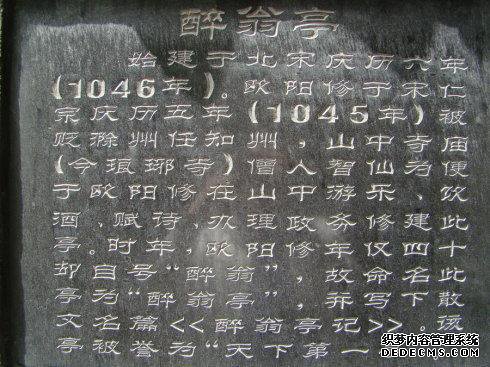 醉翁亭
始建于北宋庆历六年
(1046年)。欧阳修于宋仁
宗庆历五年(1045年)被
贬滁州任知州,山中寺庙
(今琅琊寺)僧人智仙为便
于欧阳修在山中游乐、饮
酒、赋诗、办理政务修建此
亭。时年,欧阳修年仅四十
却自号“醉翁”,故命名此
亭为“醉翁亭”,并写下散
文名篇<<醉翁亭记>>。该
亭被誉为“天下第一
织梦内容管理系统
DEDECMS.COM